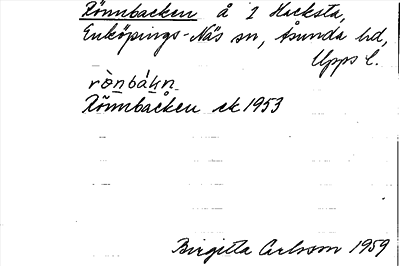 Rönnbacken å 1 Hacksta,
Enköpings-Näs sn, Åsunda hd,
Upps l.
rònbákn
Rönnbacken ek 1953
Birgitta Carlsson 1959